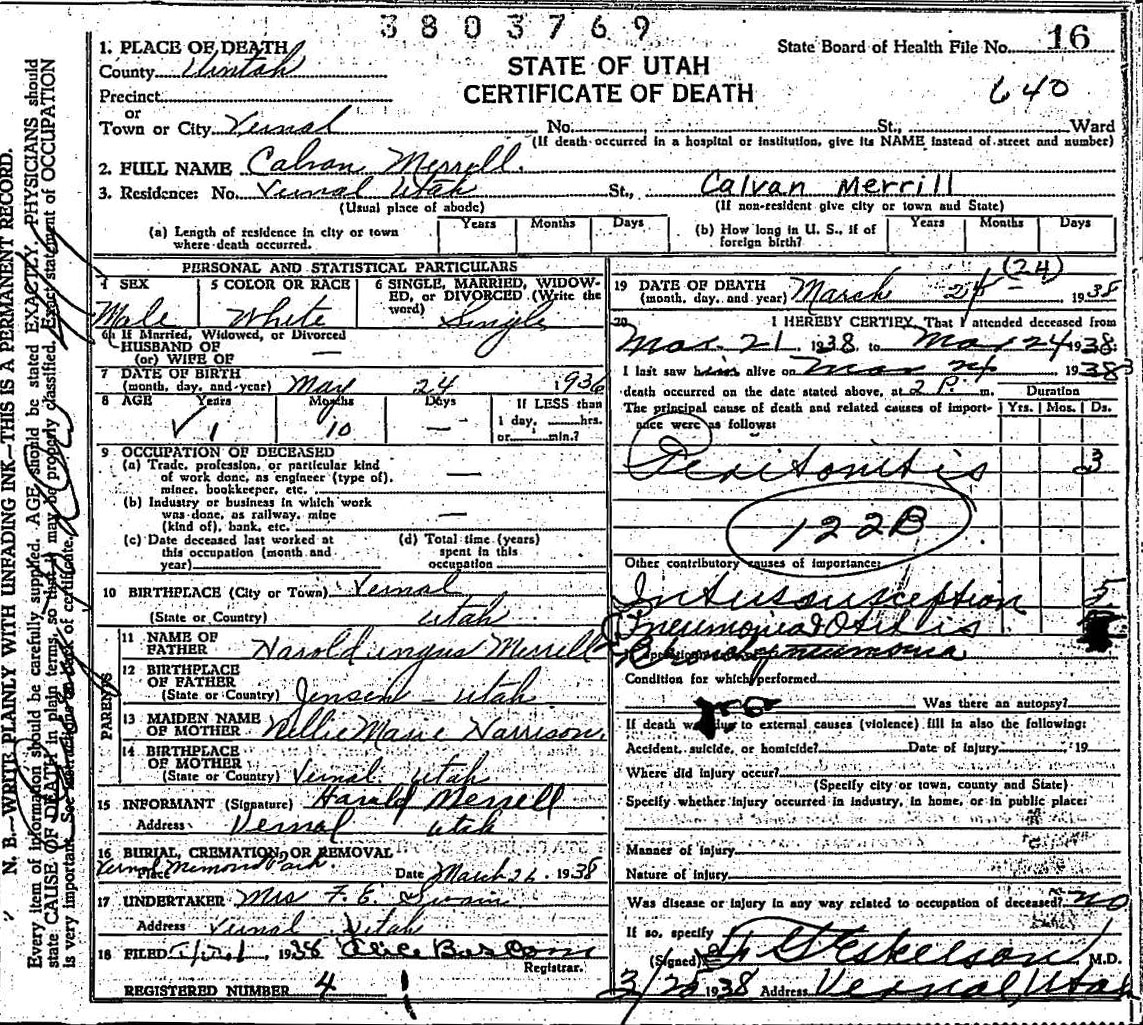 3803769
1. PLACE OF DEATH
State Board of Health File No. 16
County Uintah
STATE OF UTAH
Precinct
CERTIFICATE OF DEATH
640
or
Town or City Vernal No. St., Ward
(If death occurred in a hospital or institution, give its NAME instead of street and number)
2. FULL NAME Calvan Merrell.
3. Residence: No. Vernal Utah St., Calvan Merrill
(Usual place of abode) (If non-resident give city or town and State)
(a) Length of residence in city or town where death occurred. Years Months Days
(b) How long in U. S., if of foreign birth? Years Months Days
PERSONAL AND STATISTICAL PARTICULARS
4 SEX 5 COLOR OR RACE 6 SINGLE, MARRIED, WIDOW-
ED, or DIVORCED (Write the
word)
Male White Single
If Married, Widowed, or Divorced
HUSBAND OF
(or) WIFE OF —
7 DATE OF BIRTH
(month, day, and year) May 24 1936
8 AGE Years Months Days If LESS than
1 10 — 1 day, hrs.
or min.?
9 OCCUPATION OF DECEASED
(a) Trade, profession, or particular kind
of work done, as engineer (type of),
miner, bookkeeper, etc. —
(b) Industry or business in which work
was done, as railway, mine
(kind of), bank, etc. —
(c) Date deceased last worked at
this occupation (month and
year)
(d) Total time (years)
spent in this
occupation
10 BIRTHPLACE (City or Town) Vernal
(State or Country) Utah
PARENTS
11 NAME OF
FATHER Harold Merrell
12 BIRTHPLACE
OF FATHER
(State or Country) Jensen - Utah
13 MAIDEN NAME
OF MOTHER Nellie Marie Harrison
14 BIRTHPLACE
OF MOTHER
(State or Country) Vernal Utah
15 INFORMANT (Signature) Harald Merrell
Address Vernal Utah
16 BURIAL, CREMATION, OR REMOVAL
Place Vernal Memorial Park. Date March 26 1938
17 UNDERTAKER Mrs F. E. Swain
Address Vernal Utah
18 FILED 1938
Registrar.
REGISTERED NUMBER 4
19 DATE OF DEATH
(month, day, and year) March 24 (24) 1938
20 I HEREBY CERTIFY, That I attended deceased from
Mar. 21, 1938, to Mar 24 1938;
I last saw him alive on Mar 24 1938
death occurred on the date stated above, at 2 P. m.
Duration
The principal cause of death and related causes of import-
ance were as follows:
Yrs. Mos. Ds.
Peritonitis 3
122B
Other contributory causes of importance:
Intussusception 5
Pneumonia & Otitis
Bronchopneumonia
Condition for which performed
Was there an autopsy?
If death was due to external causes (violence) fill in also the following:
Accident, suicide, or homicide? Date of injury 19
Where did injury occur?
(Specify city or town, county and State)
Specify whether injury occurred in industry, in home, or in public place:
Manner of injury
Nature of injury
Was disease or injury in any way related to occupation of deceased? no
If so, specify
(Signed) Eskelson M.D.
3/25 1938 Address Vernal, Utah
N. B.—WRITE PLAINLY WITH UNFADING INK—THIS IS A PERMANENT RECORD.
Every item of information should be carefully supplied. AGE should be stated EXACTLY. PHYSICIANS should
state CAUSE OF DEATH in plain terms, so that it may be properly classified. Exact statement of OCCUPATION
is very important. See instructions on back of certificate.